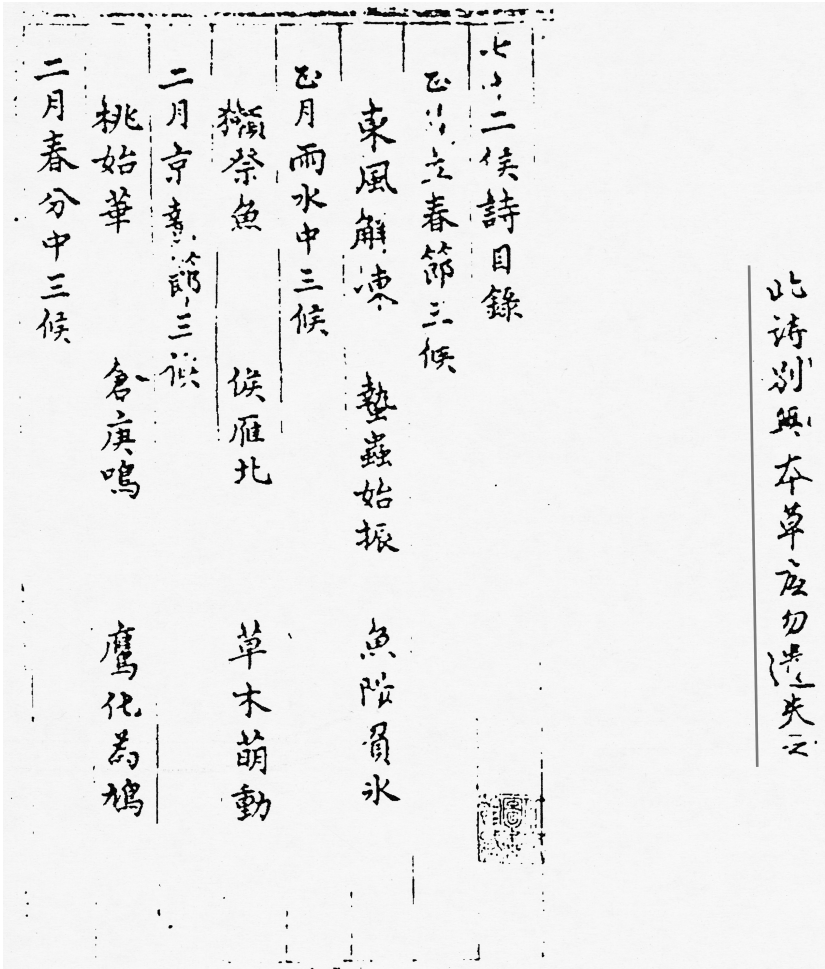 此詩別無本草底勿遺失云
七十二候詩目錄
正月立春節三候
東風解凍 蟄蟲始振 魚陟負氷
正月雨水中三候
獺祭魚 候雁北 草木萌動
二月京蟄節三候
桃始華 倉庚鳴 鷹化為鳩
二月春分中三候